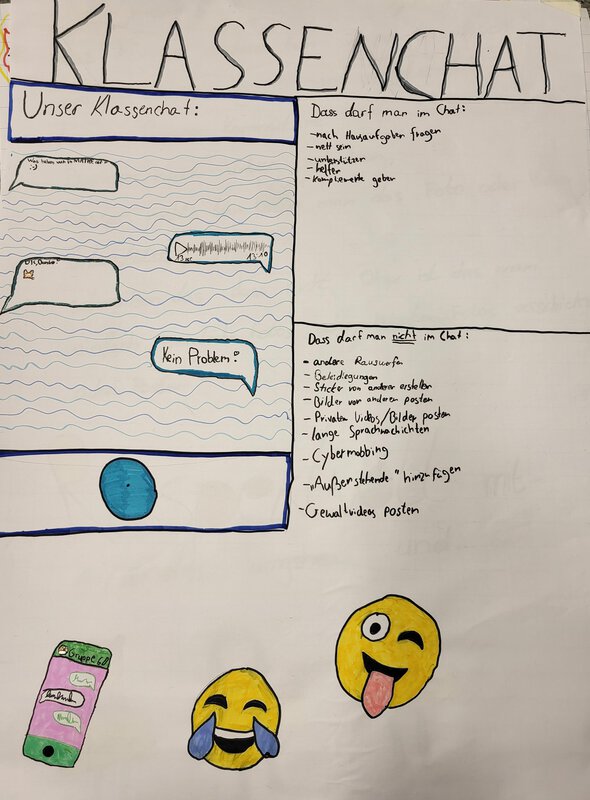 KLASSENCHAT
Unser Klassenchat:
Was haben wir in
:-)
13 sec 13:10
Ok, Danke!
Kein Problem!
Dass darf man im Chat:
-nach Hausaufgaben fragen
-nett sein
-unterstützen
-helfen
-Komplemente geben
Dass darf man nicht im Chat:
- andere Rauswerfen
- Beleidiegungen
- Sticker von anderen erstellen
- Bilder von anderen posten
- Privaten Vidios/Bilder posten
- lange Sprachnachichten
- Cybermobbing
- „Außenstehende" hinzufügen
-Gewaltvideos posten
Gruppe